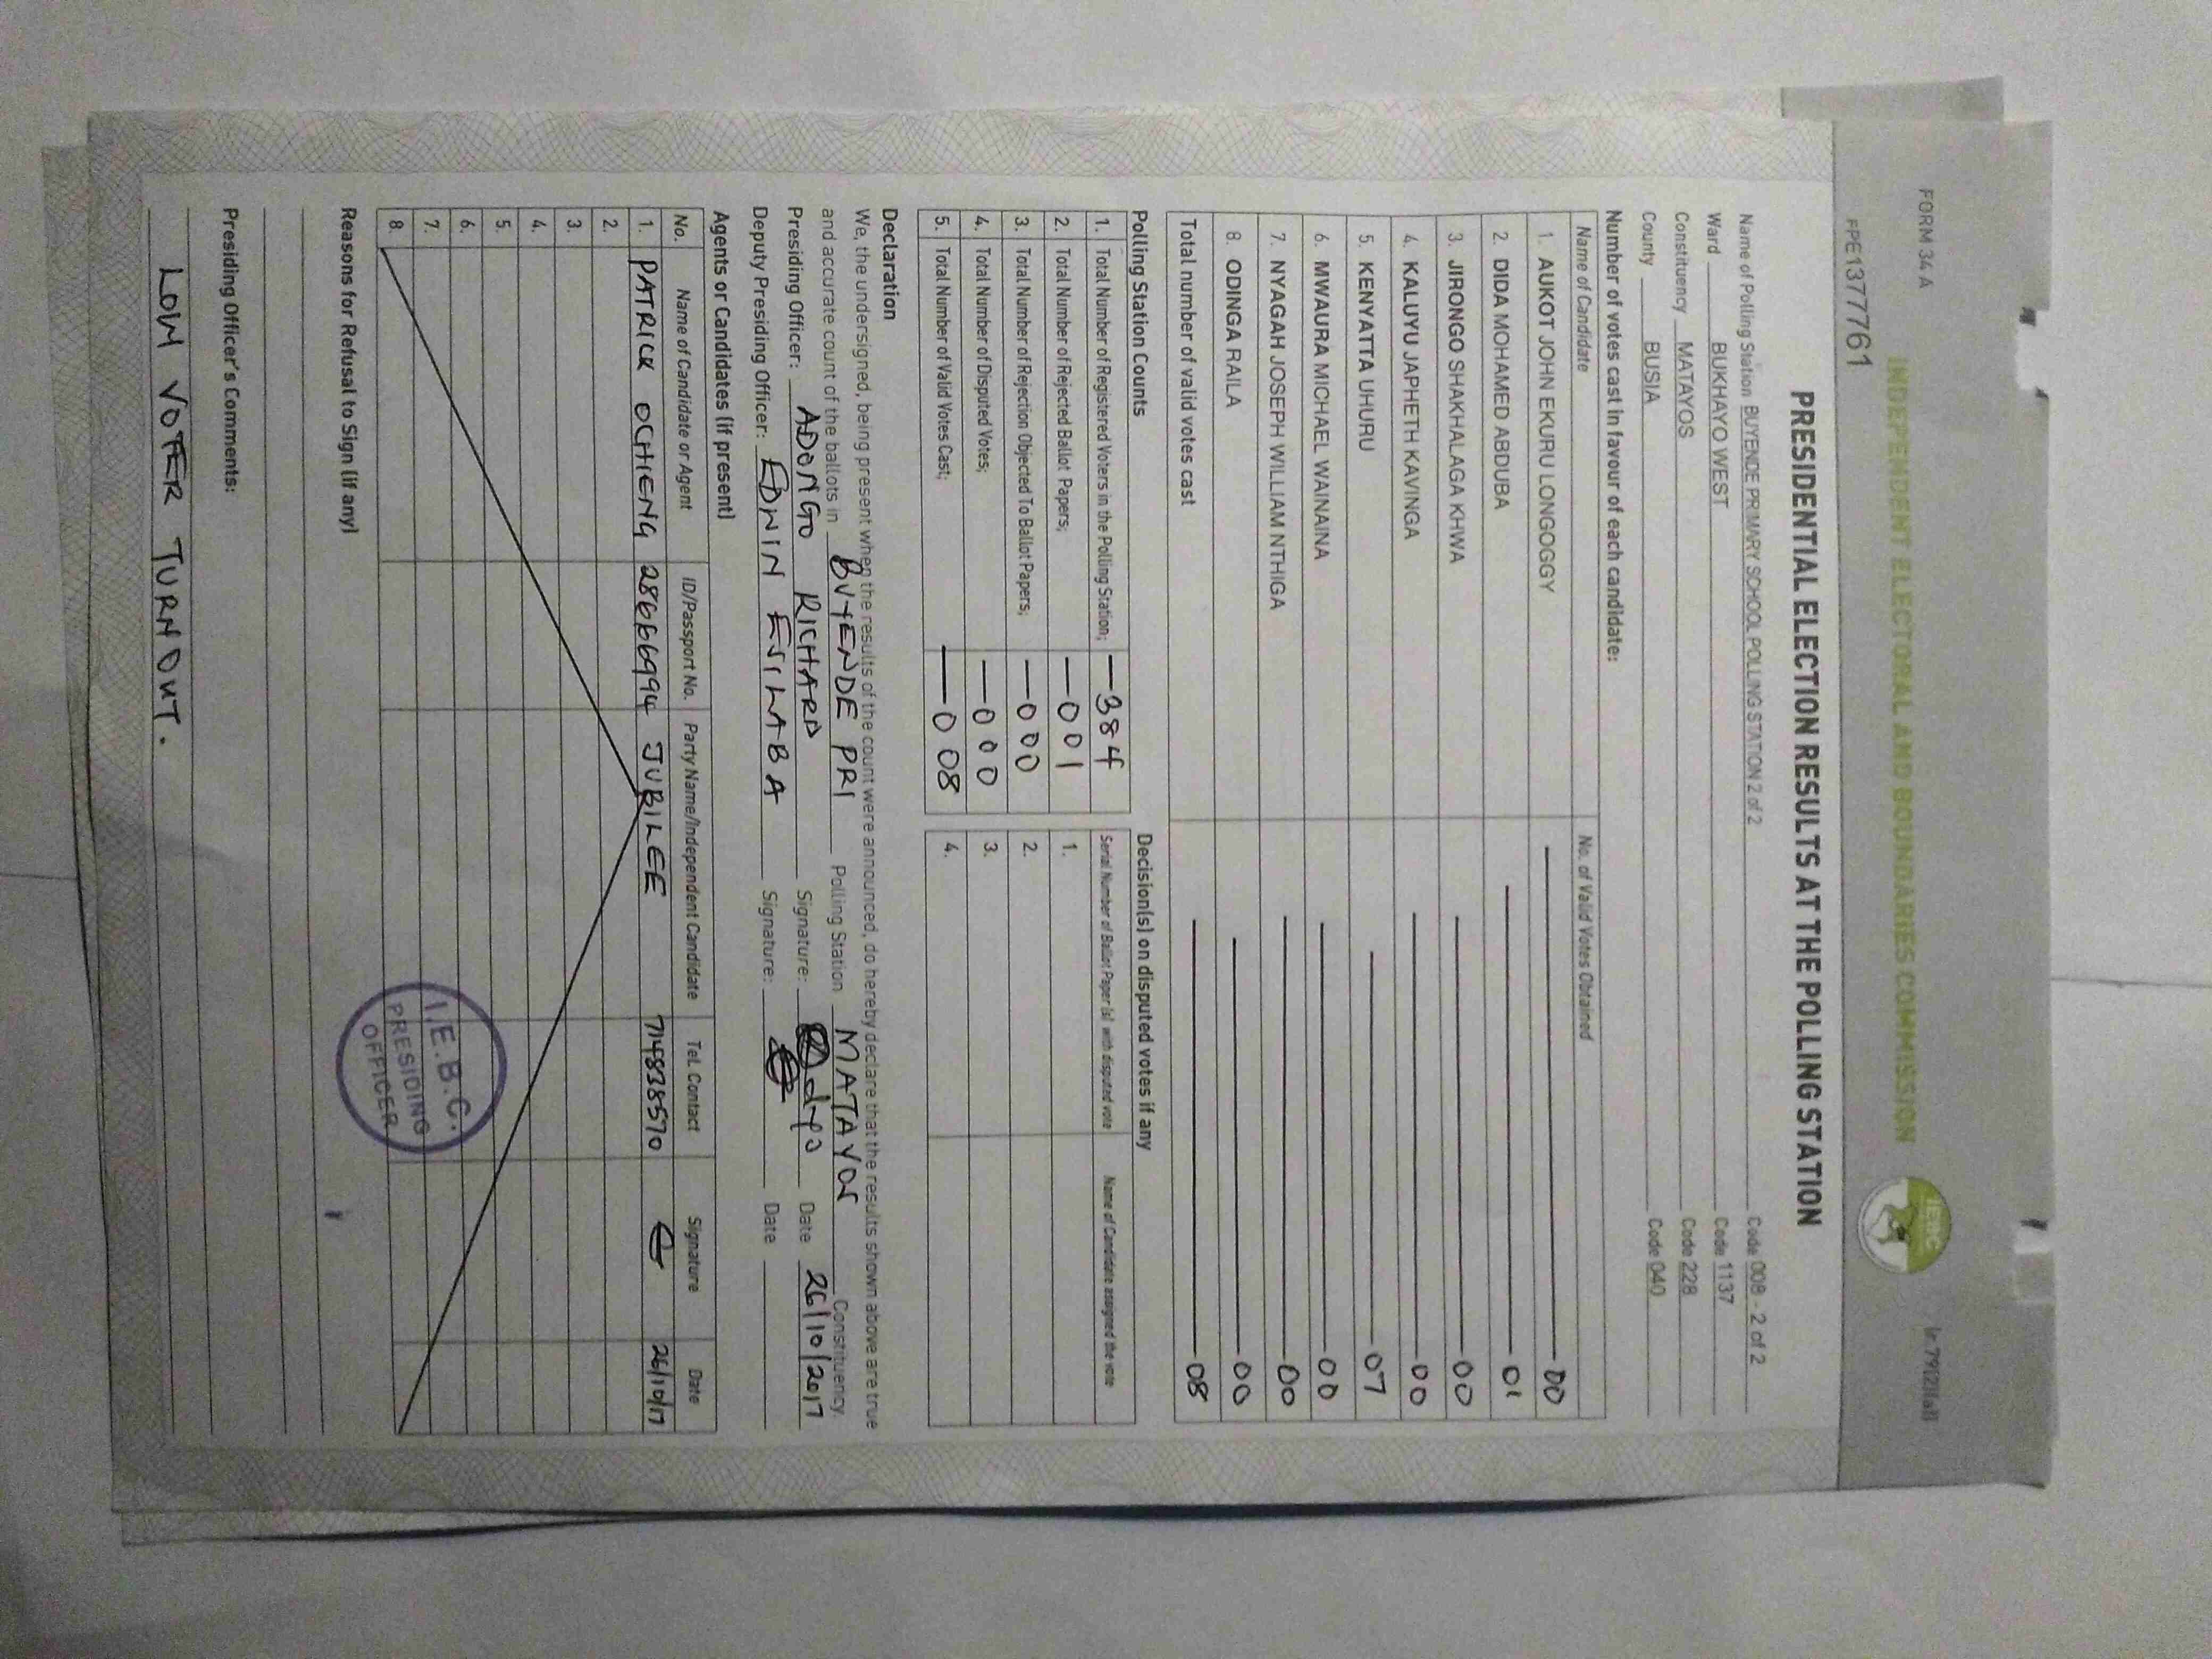 FORM 34 A
INDEPENDENT ELECTORAL AND BOUNDARIES COMMISSION
IEBC
PPE1377761
PRESIDENTIAL ELECTION RESULTS AT THE POLLING STATION
Name of Polling Station BUYENDE PRIMARY SCHOOL POLLING STATION 2 of 2 Code 008 - 2 of 2
Ward BUKHAYO WEST Code 1137
Constituency MATAYOS Code 228
County BUSIA Code 040
Number of votes cast in favour of each candidate:
Name of Candidate No. of Valid Votes Obtained
1. AUKOT JOHN EKURU LONGOGGY 00
2. DIDA MOHAMED ABDUBA 01
3. JIRONGO SHAKHALAGA KHWA 00
4. KALUYU JAPHETH KAVINGA 00
5. KENYATTA UHURU 07
6. MWAURA MICHAEL WAINAINA 00
7. NYAGAH JOSEPH WILLIAM NTHIGA 00
8. ODINGA RAILA 00
Total number of valid votes cast 08
Polling Station Counts
1. Total Number of Registered Voters in the Polling Station; 384
2. Total Number of Rejected Ballot Papers; 001
3. Total Number of Rejection Objected To Ballot Papers; 000
4. Total Number of Disputed Votes; 000
5. Total Number of Valid Votes Cast; 008
Decision(s) on disputed votes if any
Serial Number of Ballot Paper (s) with disputed vote Name of Candidate assigned the vote
1.
2.
3.
4.
Declaration
We, the undersigned, being present when the results of the count were announced, do hereby declare that the results shown above are true
and accurate count of the ballots in BUYENDE PRI Polling Station MATAYOS Constituency.
Presiding Officer: ADONGO RICHARD Signature: Date 26/10/2017
Deputy Presiding Officer: EDWIN ESILABA Signature: Date
Agents or Candidates (if present)
No. Name of Candidate or Agent ID/Passport No. Party Name/Independent Candidate Tel. Contact Signature Date
1. PATRICK OCHIENG 28666994 JUBILEE 714838570 26/10/17
2.
3.
4.
5.
6.
7.
8.
I.E.B.C.
PRESIDING
OFFICER
Reasons for Refusal to Sign (if any)
Presiding Officer's Comments:
LOW VOTER TURNOUT.